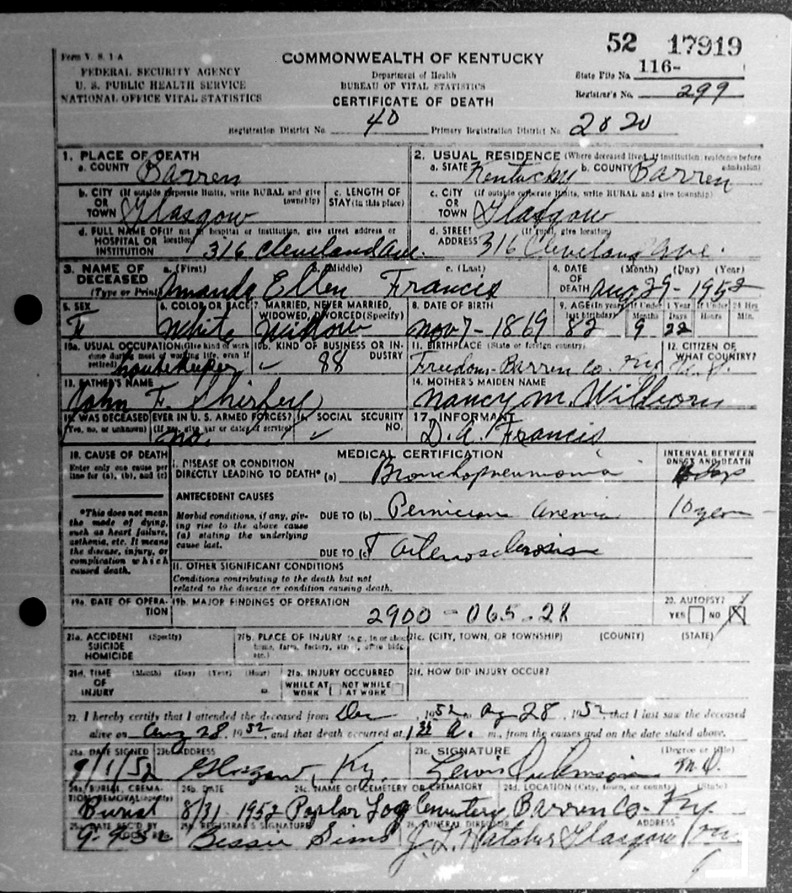 52 17919
Form V. S. 1 A
COMMONWEALTH OF KENTUCKY
FEDERAL SECURITY AGENCY
U. S. PUBLIC HEALTH SERVICE
NATIONAL OFFICE VITAL STATISTICS
Department of Health
BUREAU OF VITAL STATISTICS
CERTIFICATE OF DEATH
State File No. 116-
Registrar's No. 299
Registration District No. 40 Primary Registration District No. 2820
1. PLACE OF DEATH
a. COUNTY Barren
2. USUAL RESIDENCE (Where deceased lived, if institution: residence before admission)
a. STATE Kentucky b. COUNTY Barren
b. CITY OR TOWN (If outside corporate limits, write RURAL and give township) Glasgow
c. LENGTH OF STAY (in this place)
c. CITY OR TOWN (If outside corporate limits, write RURAL and give township) Glasgow
d. FULL NAME OF HOSPITAL OR INSTITUTION (If not in hospital or institution, give street address or location) 316 Cleveland Ave.
d. STREET ADDRESS (If rural, give location) 316 Cleveland Ave.
3. NAME OF DECEASED (Type or Print) a. (First) b. (Middle) c. (Last)
Amanda Ellen Francis
4. DATE OF DEATH (Month) (Day) (Year) Aug 29 - 1952
5. SEX F
6. COLOR OR RACE White
7. MARRIED, NEVER MARRIED, WIDOWED, DIVORCED (Specify) Widow
8. DATE OF BIRTH Nov 7 - 1869
9. AGE (In years last birthday) 82 If Under 1 Year Months 9 Days 22 If Under 24 Hrs. Hours Min.
10a. USUAL OCCUPATION (Give kind of work done during most of working life, even if retired) housekeeper
10b. KIND OF BUSINESS OR INDUSTRY 88
11. BIRTHPLACE (State or foreign country) Freedom - Barren Co.
12. CITIZEN OF WHAT COUNTRY?
13. FATHER'S NAME John F. Shirley
14. MOTHER'S MAIDEN NAME Nancy M.
15. WAS DECEASED EVER IN U. S. ARMED FORCES? (Yes, no, or unknown) (If yes, give war or dates of service) no.
16. SOCIAL SECURITY NO.
17. INFORMANT D. A. Francis
18. CAUSE OF DEATH
Enter only one cause per line for (a), (b), and (c)
MEDICAL CERTIFICATION
INTERVAL BETWEEN ONSET AND DEATH
I. DISEASE OR CONDITION DIRECTLY LEADING TO DEATH* (a) Bronchopneumonia days
*This does not mean the mode of dying, such as heart failure, asthenia, etc. It means the disease, injury, or complication which caused death.
ANTECEDENT CAUSES
Morbid conditions, if any, giving rise to the above cause (a) stating the underlying cause last.
DUE TO (b) Pernicious anemia 10 years
DUE TO (c) Arteriosclerosis
II. OTHER SIGNIFICANT CONDITIONS
Conditions contributing to the death but not related to the disease or condition causing death.
19a. DATE OF OPERATION
19b. MAJOR FINDINGS OF OPERATION
2900 - 065 - 28
20. AUTOPSY?
YES NO X
21a. ACCIDENT SUICIDE HOMICIDE (Specify)
21b. PLACE OF INJURY (e.g., in or about home, farm, factory, street, office bldg., etc.)
21c. (CITY, TOWN, OR TOWNSHIP) (COUNTY) (STATE)
21d. TIME OF INJURY (Month) (Day) (Year) (Hour)
21e. INJURY OCCURRED
WHILE AT WORK NOT WHILE AT WORK
21f. HOW DID INJURY OCCUR?
22. I hereby certify that I attended the deceased from Dec, 1952, to Aug 28, 1952, that I last saw the deceased
alive on Aug 28, 1952, and that death occurred at 1 A. m., from the causes and on the date stated above.
23a. DATE SIGNED 9/1/52
23b. ADDRESS Glasgow, Ky.
23c. SIGNATURE (Degree or title) Lewis M.D.
24a. BURIAL, CREMATION, REMOVAL (Specify) Burial
24b. DATE 8/31 - 1952
24c. NAME OF CEMETERY OR CREMATORY Poplar Log Cemetery
24d. LOCATION (City, town, or county) (State) Barren Co - Ky.
25a. DATE REC'D BY LOCAL REG.
25b. REGISTRAR'S SIGNATURE Bessie Sims
26. FUNERAL DIRECTOR ADDRESS Glasgow